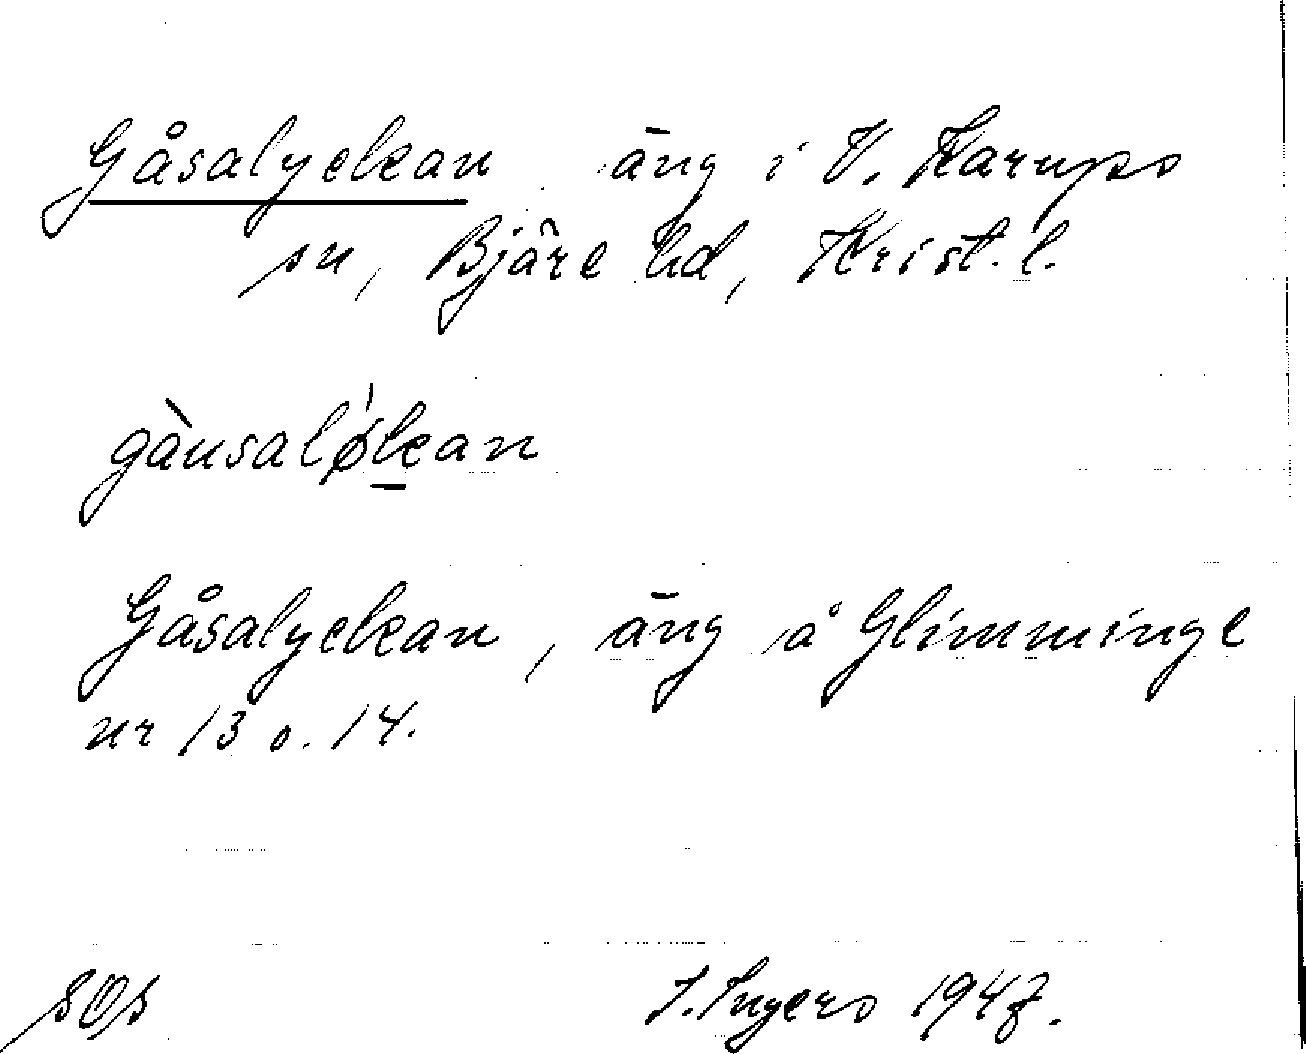 Gåsalyckan äng i V. Karups
sn, Bjäre hd, Krist. l.
gàusalø̍ḵan
Gåsalyckan, äng å Glimminge
nr 13 o. 14.
I. Ingers 1947.